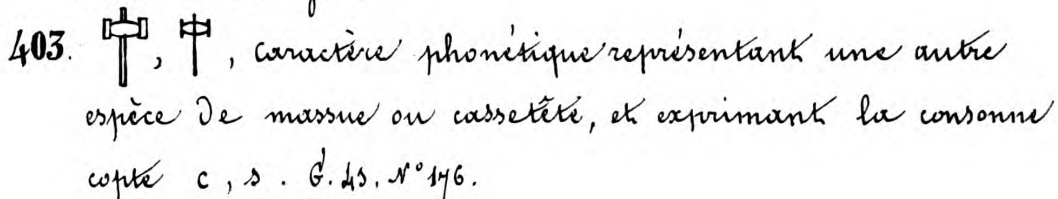 403. 𓌉, 𓌉, caractère phonétique représentant une autre
espèce de massue ou cassetête, et exprimant la consonne
copte c, s. G. 43. N° 176.